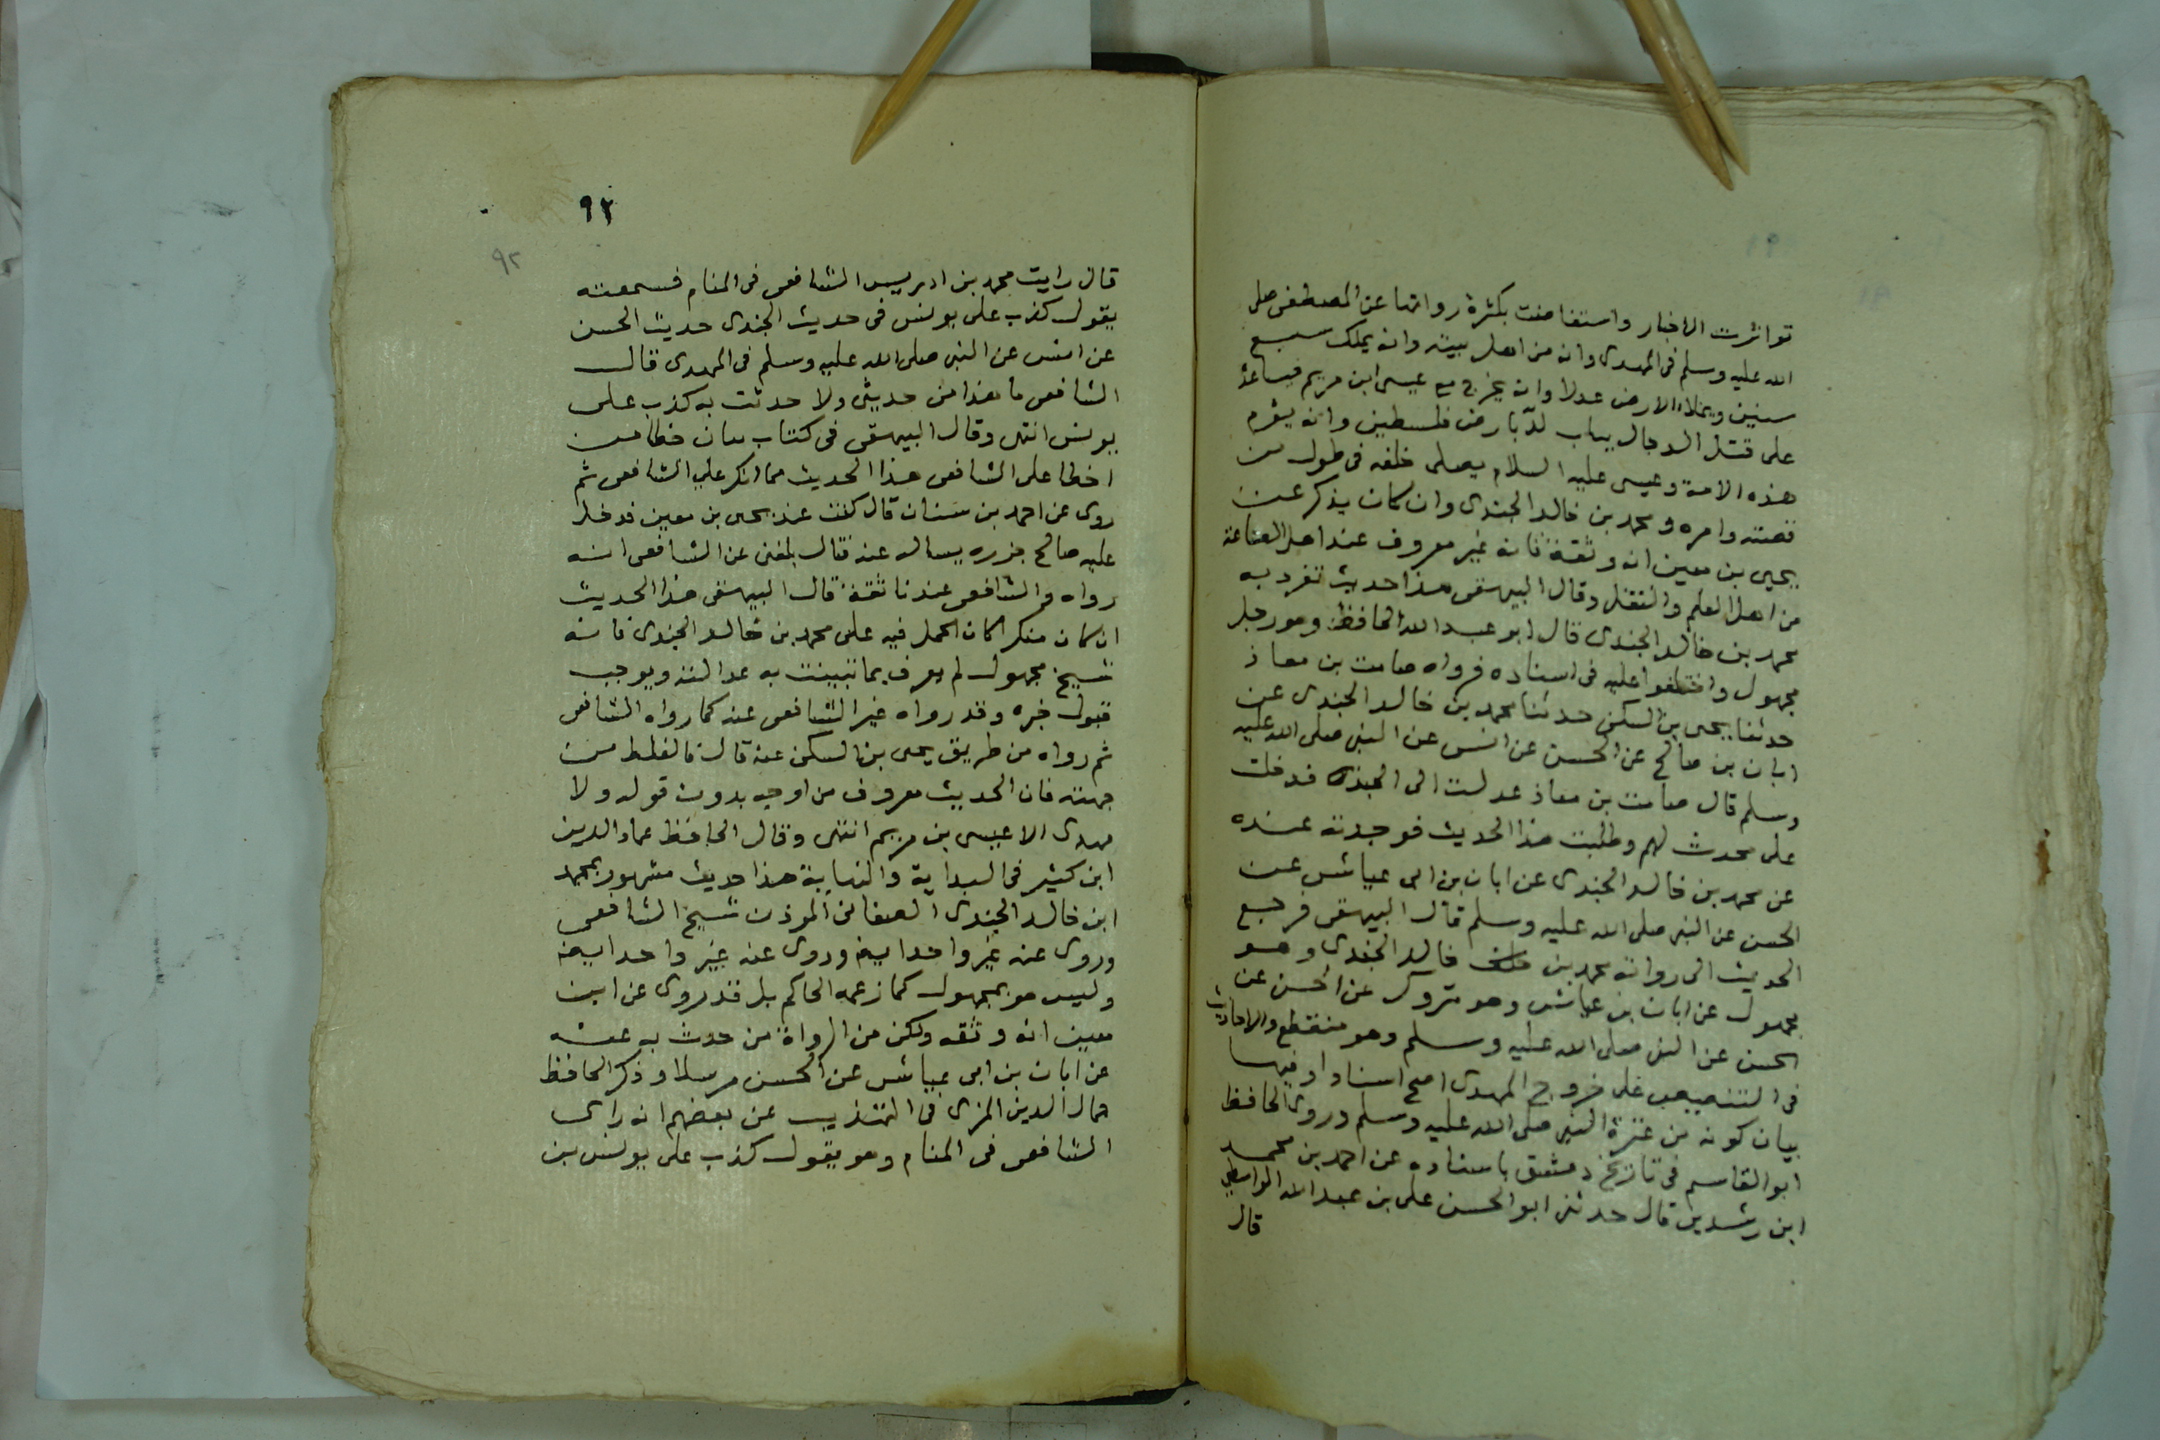 تواترت الاخبار واستفاضت بكثرة رواتها عن المصطفى صلى
الله عليه وسلم فى المهدى وانه من اهل بيته وانه يملك سبع
سنين ويملاء الارض عدلا وانه يخرج مع عيسى ابن مريم فيساعده
على قتل الدجال بباب لدّ بارض فلسطين وانه يؤم
هذه الامة وعيسى عليه السلام يصلى خلفه فى طول من
قصته وامره ومحمد بن خالد الجندى وان كان يذكر عن
يحيى بن معين انه وثقة فانه غير معروف عند اهل الصناعة
من اهل العلم والنقل وقال البيهقى هذا حديث تفرد به
محمد بن خالد الجندى قال ابو عبد الله الحافظ وهو رجل
مجهول واختلفوا عليه فى اسناده فرواه صامت بن معاذ
حدثنا يحيى بن السكن حدثنا محمد بن خالد الجندى عن
ابان بن صالح عن الحسن عن انس عن النبى صلى الله عليه
وسلم قال صامت بن معاذ عدلت الى الجند فدخلت
على محدث لهم وطلبت هذا الحديث فوجدته عنده
عن محمد بن خالد الجندى عن ابان بن ابى عياش عن
الحسن عن النبى صلى الله عليه وسلم قال البيهقى فرجع
الحديث الى رواته محمد بن خالد الجندى وهو
مجهول عن ابان بن عياش وهو متروك عن الحسن عن
الحسن عن النبى صلى الله عليه وسلم وهو منقطع والاحاديث
فى التنصيص على خروج المهدى اصح اسنادا وفيها
بيان كونه من عترة النبى صلى الله عليه وسلم وروى الحافظ
ابو القاسم فى تاريخ دمشق باسناده عن احمد بن محمد
ابن رشدين قال حدثنى ابو الحسن على بن عبد الله الواسطى
قال
٩٢
٩٢
قال رايت محمد بن ادريس الشافعى فى المنام فسمعته
يقول كذب على يونس فى حديث الجندى حديث الحسن
عن انس عن النبى صلى الله عليه وسلم فى المهدى قال
الشافعى ما هذا من حديثى ولا حدثت به كذب على
يونس انتهى وقال البيهقى فى كتاب بيان خطا من
اخطا على الشافعى هذا الحديث مما انكر على الشافعى ثم
روى عن احمد بن سنان قال كنت عند يحيى بن معين فدخل
عليه صالح جزره يساله عنه فقال بلغنى عن الشافعى انه
رواه والشافعى عندنا ثقة قال البيهقى هذا الحديث
ان كان منكرا كان الحمل فيه على محمد بن خالد الجندى فانه
شيخ مجهول لم يعرف بما تبينت به عدالته ويوجب
قبول خبره وقد رواه غير الشافعى عنه كما رواه الشافعى
ثم رواه من طريق يحيى بن السكن عنه قال فالغلط من
جهته فان الحديث معروف من اوجه بدون قوله ولا
مهدى الا عيسى بن مريم انتهى وقال الحافظ عماد الدين
ابن كثير فى البداية والنهاية هذا حديث مشهور بمحمد
ابن خالد الجندى الصنعانى الموذن شيخ الشافعى
وروى عنه غير واحد ايضه وروى عنه غير واحد ايضه
وليس هو بمجهول كما زعمه الحاكم بل قد روى عن ابن
معين انه وثقه ولكن من الرواة من حدث به عنه
عن ابان بن ابى عياش عن الحسن مرسلا وذكر الحافظ
جمال الدين المزى فى التهذيب عن بعضهم انه راى
الشافعى فى المنام وهو يقول كذب على يونس بن